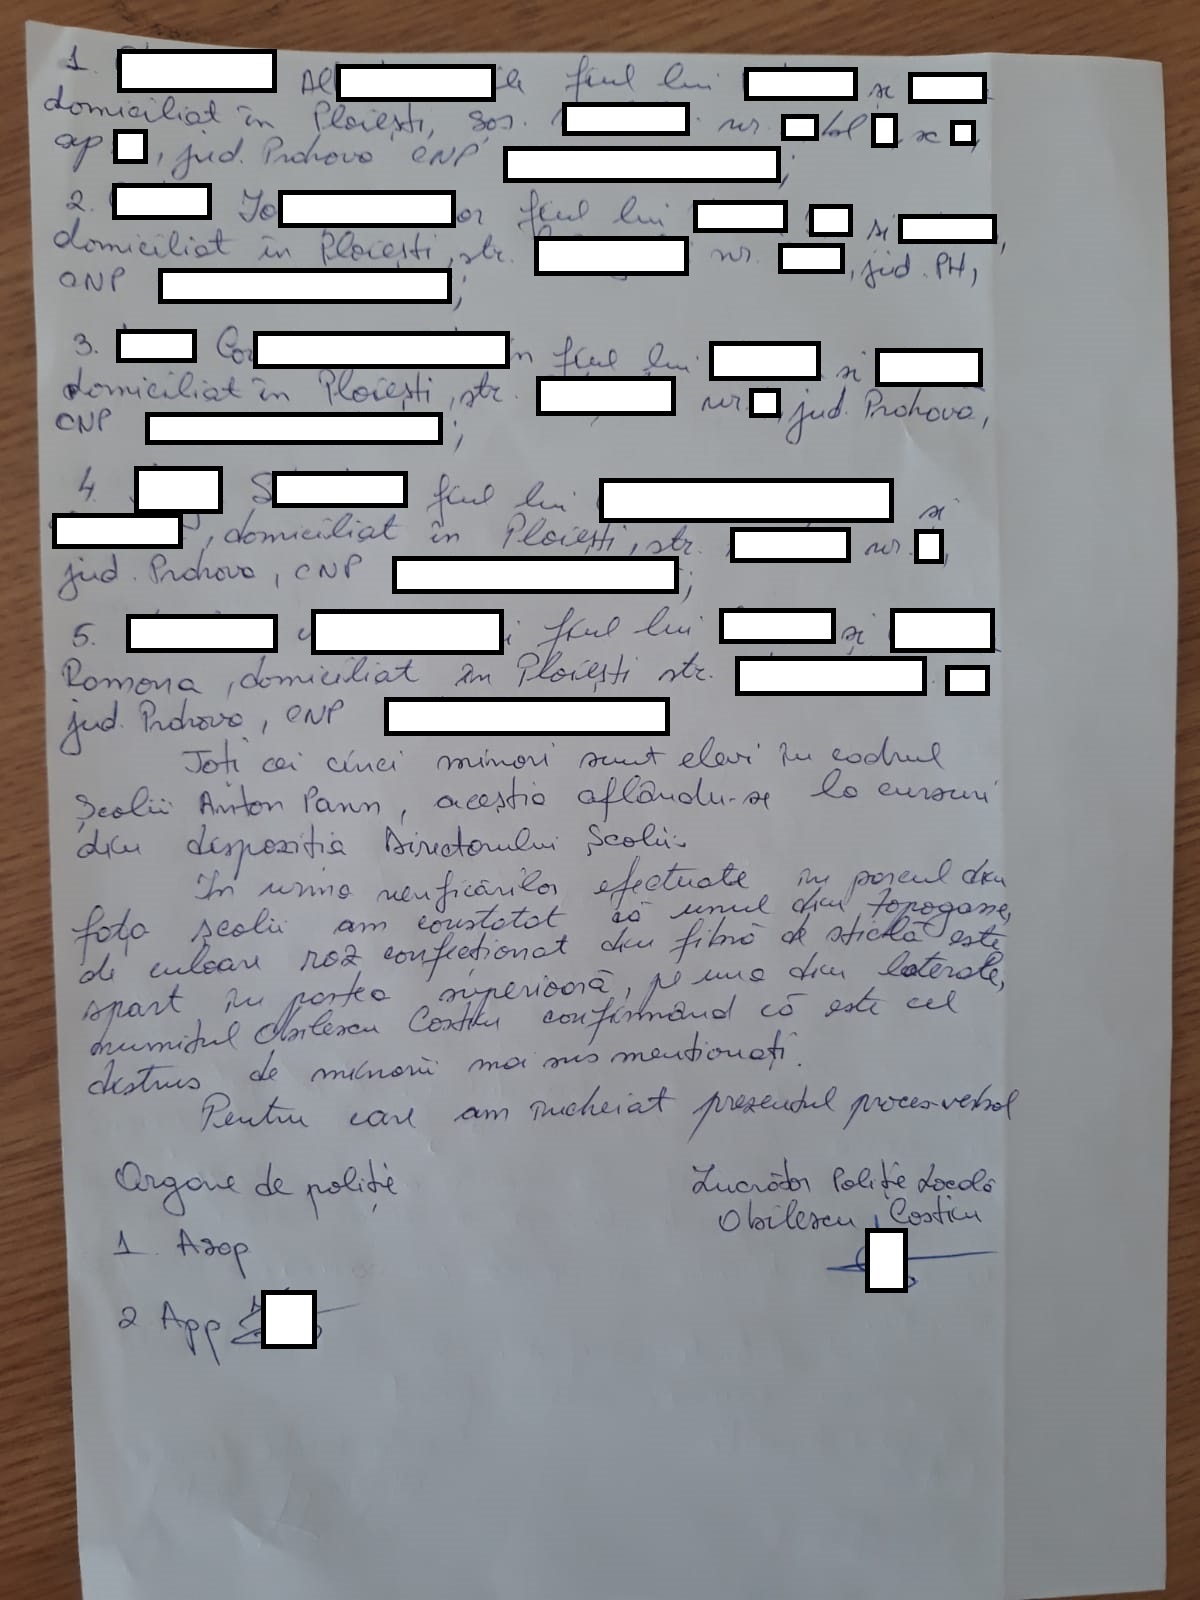 1. Al fiul lui și
domiciliat în Ploiești, Șos. nr. bl sc
ap , jud. Prahova CNP ;
2. Io or fiul lui si ,
domiciliat în Ploiești, str. nr. , jud. PH,
CNP ;
3. Cor n fiul lui si
domiciliat în Ploiești, str. nr. , jud. Prahova,
CNP ;
4. S fiul lui si
, domiciliat în Ploiești, str. nr. ,
jud. Prahova, CNP ;
5. i fiul lui și
Ramona, domiciliat în Ploiești str.
jud. Prahova, CNP
Toți cei cinci minori sunt elevi în cadrul
Școlii Anton Pann, aceștia aflându-se la cursuri
din dispoziția Directorului Școlii.
În urma verificărilor efectuate în parcul din
fața școlii am constatat că unul din topogane,
de culoare roz confecționat din fibră de sticlă este
spart în partea superioară, pe una din laterale,
numitul Obilescu Costin confirmând că este cel
distrus de minorii mai sus menționați.
Pentru care am încheiat prezentul proces-verbal
Organe de poliție Lucrător Poliție Locală
Obilescu Costin
1. Asop
2 App